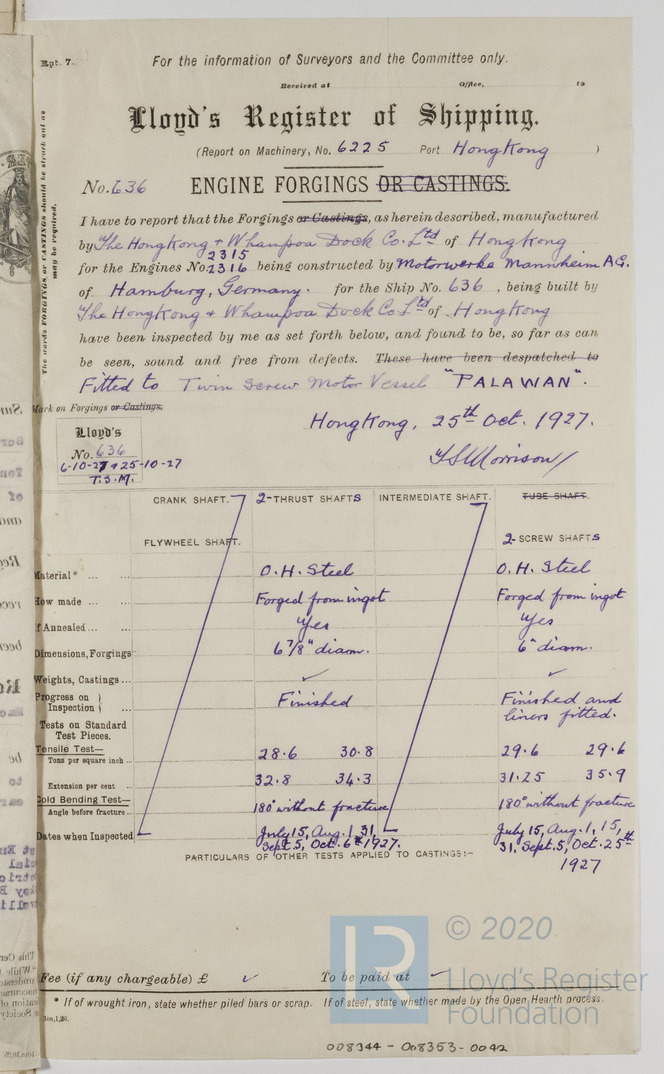 Rpt. 7.
For the information of Surveyors and the Committee only.
Received at Office, 19
Lloyd's Register of Shipping.
(Report on Machinery, No. 6225 Port HongKong )
No. 636 ENGINE FORGINGS OR CASTINGS.
I have to report that the Forgings or Castings, as herein described, manufactured
by The HongKong & Whampoa Dock Co. Ltd of HongKong
2315
for the Engines No. 2316 being constructed by Motorwerke Mannheim A.G.
of Hamburg, Germany. for the Ship No. 636, being built by
The HongKong & Whampoa Dock Co. Ltd of HongKong
have been inspected by me as set forth below, and found to be, so far as can
be seen, sound and free from defects. These have been despatched to
Fitted to Twin Screw Motor Vessel "PALAWAN".
The words FORGINGS or CASTINGS should be struck out as
may be required.
Mark on Forgings or Castings.
HongKong, 25th Oct. 1927.
Lloyd's
No. 636
6-10-27 & 25-10-27
T.S.M.
T.S. Morrison
CRANK SHAFT. 2-THRUST SHAFTS INTERMEDIATE SHAFT. TUBE SHAFT.
FLYWHEEL SHAFT. 2-SCREW SHAFTS
Material* ... ... O.H. Steel O.H. Steel
How made ... ... Forged from ingot Forged from ingot
If Annealed... ... Yes Yes
Dimensions, Forgings 6 7/8" diam. 6" diam.
Weights, Castings ... ✓ ✓
Progress on Inspection ... Finished Finished and
liners fitted.
Tests on Standard
Test Pieces.
Tensile Test—
Tons per square inch .. 28.6 30.8 29.6 29.6
Extension per cent .. 32.8 34.3 31.25 35.9
Cold Bending Test—
Angle before fracture .. 180° without fracture 180° without fracture
Dates when Inspected July 15, Aug. 1, 31, July 15, Aug. 1, 15,
Sept. 5, Oct. 6th 1927. 31, Sept. 5, Oct. 25th
1927
PARTICULARS OF OTHER TESTS APPLIED TO CASTINGS:—
© 2020
Lloyd's Register
Foundation
LR
Fee (if any chargeable) £ ✓ To be paid at ✓
* If of wrought iron, state whether piled bars or scrap. If of steel, state whether made by the Open Hearth process.
008344-008353-0042